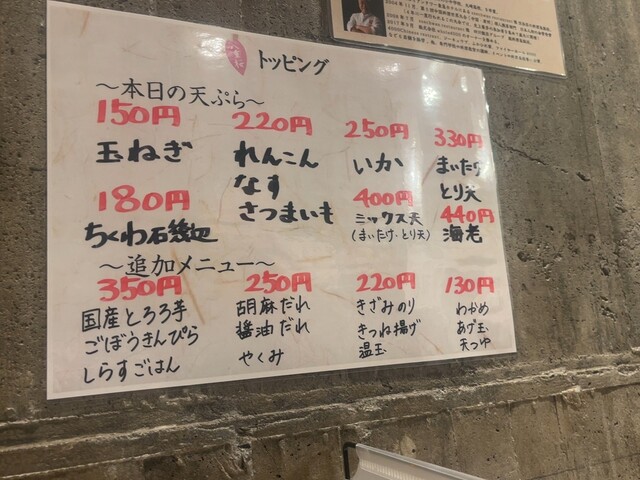 トッピング
～本日の天ぷら～
150円
玉ねぎ
180円
ちくわ石磯辺
220円
れんこん
なす
さつまいも
250円
いか
400円
ミックス天
(まいたけ・とり天)
330円
まいたけ
とり天
440円
海老
～追加メニュー～
350円
国産とろろ芋
ごぼうきんぴら
しらすごはん
250円
胡麻だれ
醤油だれ
やくみ
220円
きざみのり
きつね揚げ
温玉
130円
わかめ
あげ玉
天つゆ